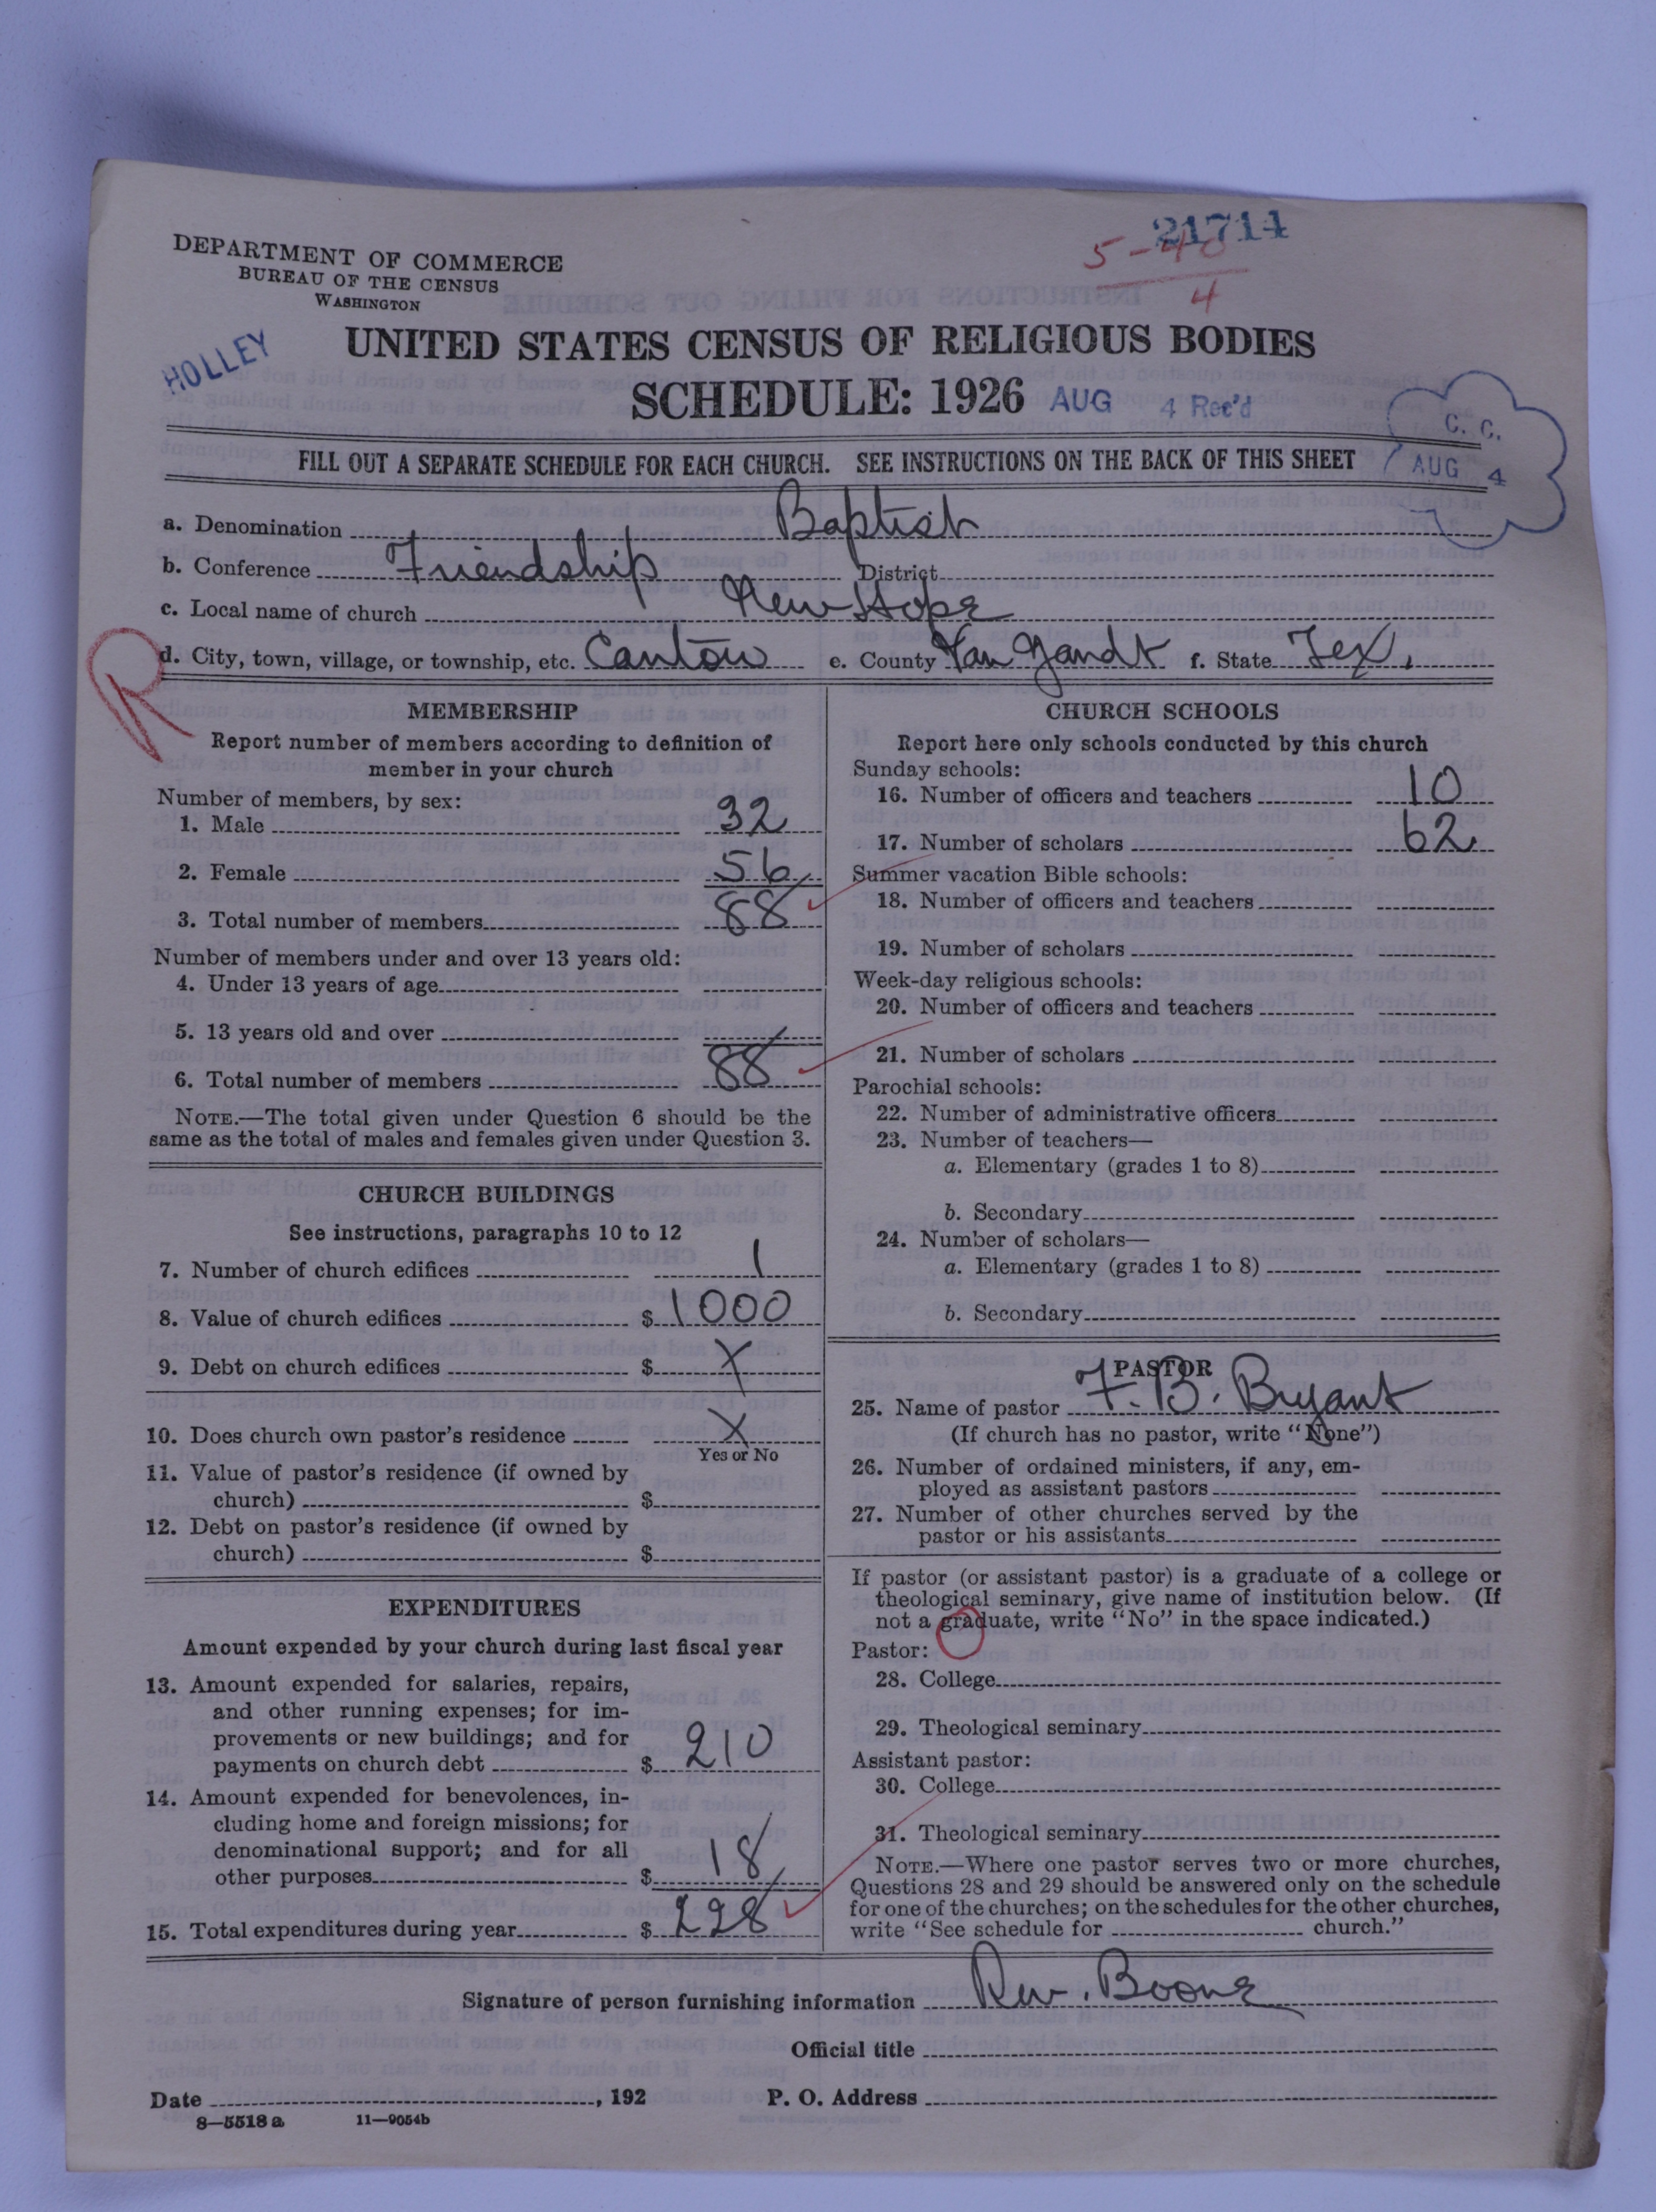 21714
5-40
4
DEPARTMENT OF COMMERCE
BUREAU OF THE CENSUS
WASHINGTON
HOLLEY
UNITED STATES CENSUS OF RELIGIOUS BODIES
SCHEDULE: 1926 AUG 4 Rec'd
C. C.
AUG 4
FILL OUT A SEPARATE SCHEDULE FOR EACH CHURCH. SEE INSTRUCTIONS ON THE BACK OF THIS SHEET
a. Denomination Baptist
b. Conference Friendship District
c. Local name of church New Hope
R
d. City, town, village, or township, etc. Canton e. County Van Zandt f. State Tex.
MEMBERSHIP
Report number of members according to definition of
member in your church
Number of members, by sex:
1. Male 32
2. Female 56
3. Total number of members 88
Number of members under and over 13 years old:
4. Under 13 years of age
5. 13 years old and over
6. Total number of members 88
NOTE.—The total given under Question 6 should be the
same as the total of males and females given under Question 3.
CHURCH BUILDINGS
See instructions, paragraphs 10 to 12
7. Number of church edifices 1
8. Value of church edifices $ 1000
9. Debt on church edifices $ X
10. Does church own pastor's residence X
Yes or No
11. Value of pastor's residence (if owned by
church) $
12. Debt on pastor's residence (if owned by
church) $
EXPENDITURES
Amount expended by your church during last fiscal year
13. Amount expended for salaries, repairs,
and other running expenses; for im-
provements or new buildings; and for
payments on church debt $ 210
14. Amount expended for benevolences, in-
cluding home and foreign missions; for
denominational support; and for all
other purposes $ 18
15. Total expenditures during year $ 228
CHURCH SCHOOLS
Report here only schools conducted by this church
Sunday schools:
16. Number of officers and teachers 10
17. Number of scholars 62
Summer vacation Bible schools:
18. Number of officers and teachers
19. Number of scholars
Week-day religious schools:
20. Number of officers and teachers
21. Number of scholars
Parochial schools:
22. Number of administrative officers
23. Number of teachers—
a. Elementary (grades 1 to 8)
b. Secondary
24. Number of scholars—
a. Elementary (grades 1 to 8)
b. Secondary
PASTOR
25. Name of pastor F. B. Bryant
(If church has no pastor, write "None")
26. Number of ordained ministers, if any, em-
ployed as assistant pastors
27. Number of other churches served by the
pastor or his assistants
If pastor (or assistant pastor) is a graduate of a college or
theological seminary, give name of institution below. (If
not a graduate, write "No" in the space indicated.)
Pastor:
28. College
29. Theological seminary
Assistant pastor:
30. College
31. Theological seminary
NOTE.—Where one pastor serves two or more churches,
Questions 28 and 29 should be answered only on the schedule
for one of the churches; on the schedules for the other churches,
write "See schedule for church."
Signature of person furnishing information Rev. Boone
Official title
Date , 192 P. O. Address
8—5518 a 11—9054b